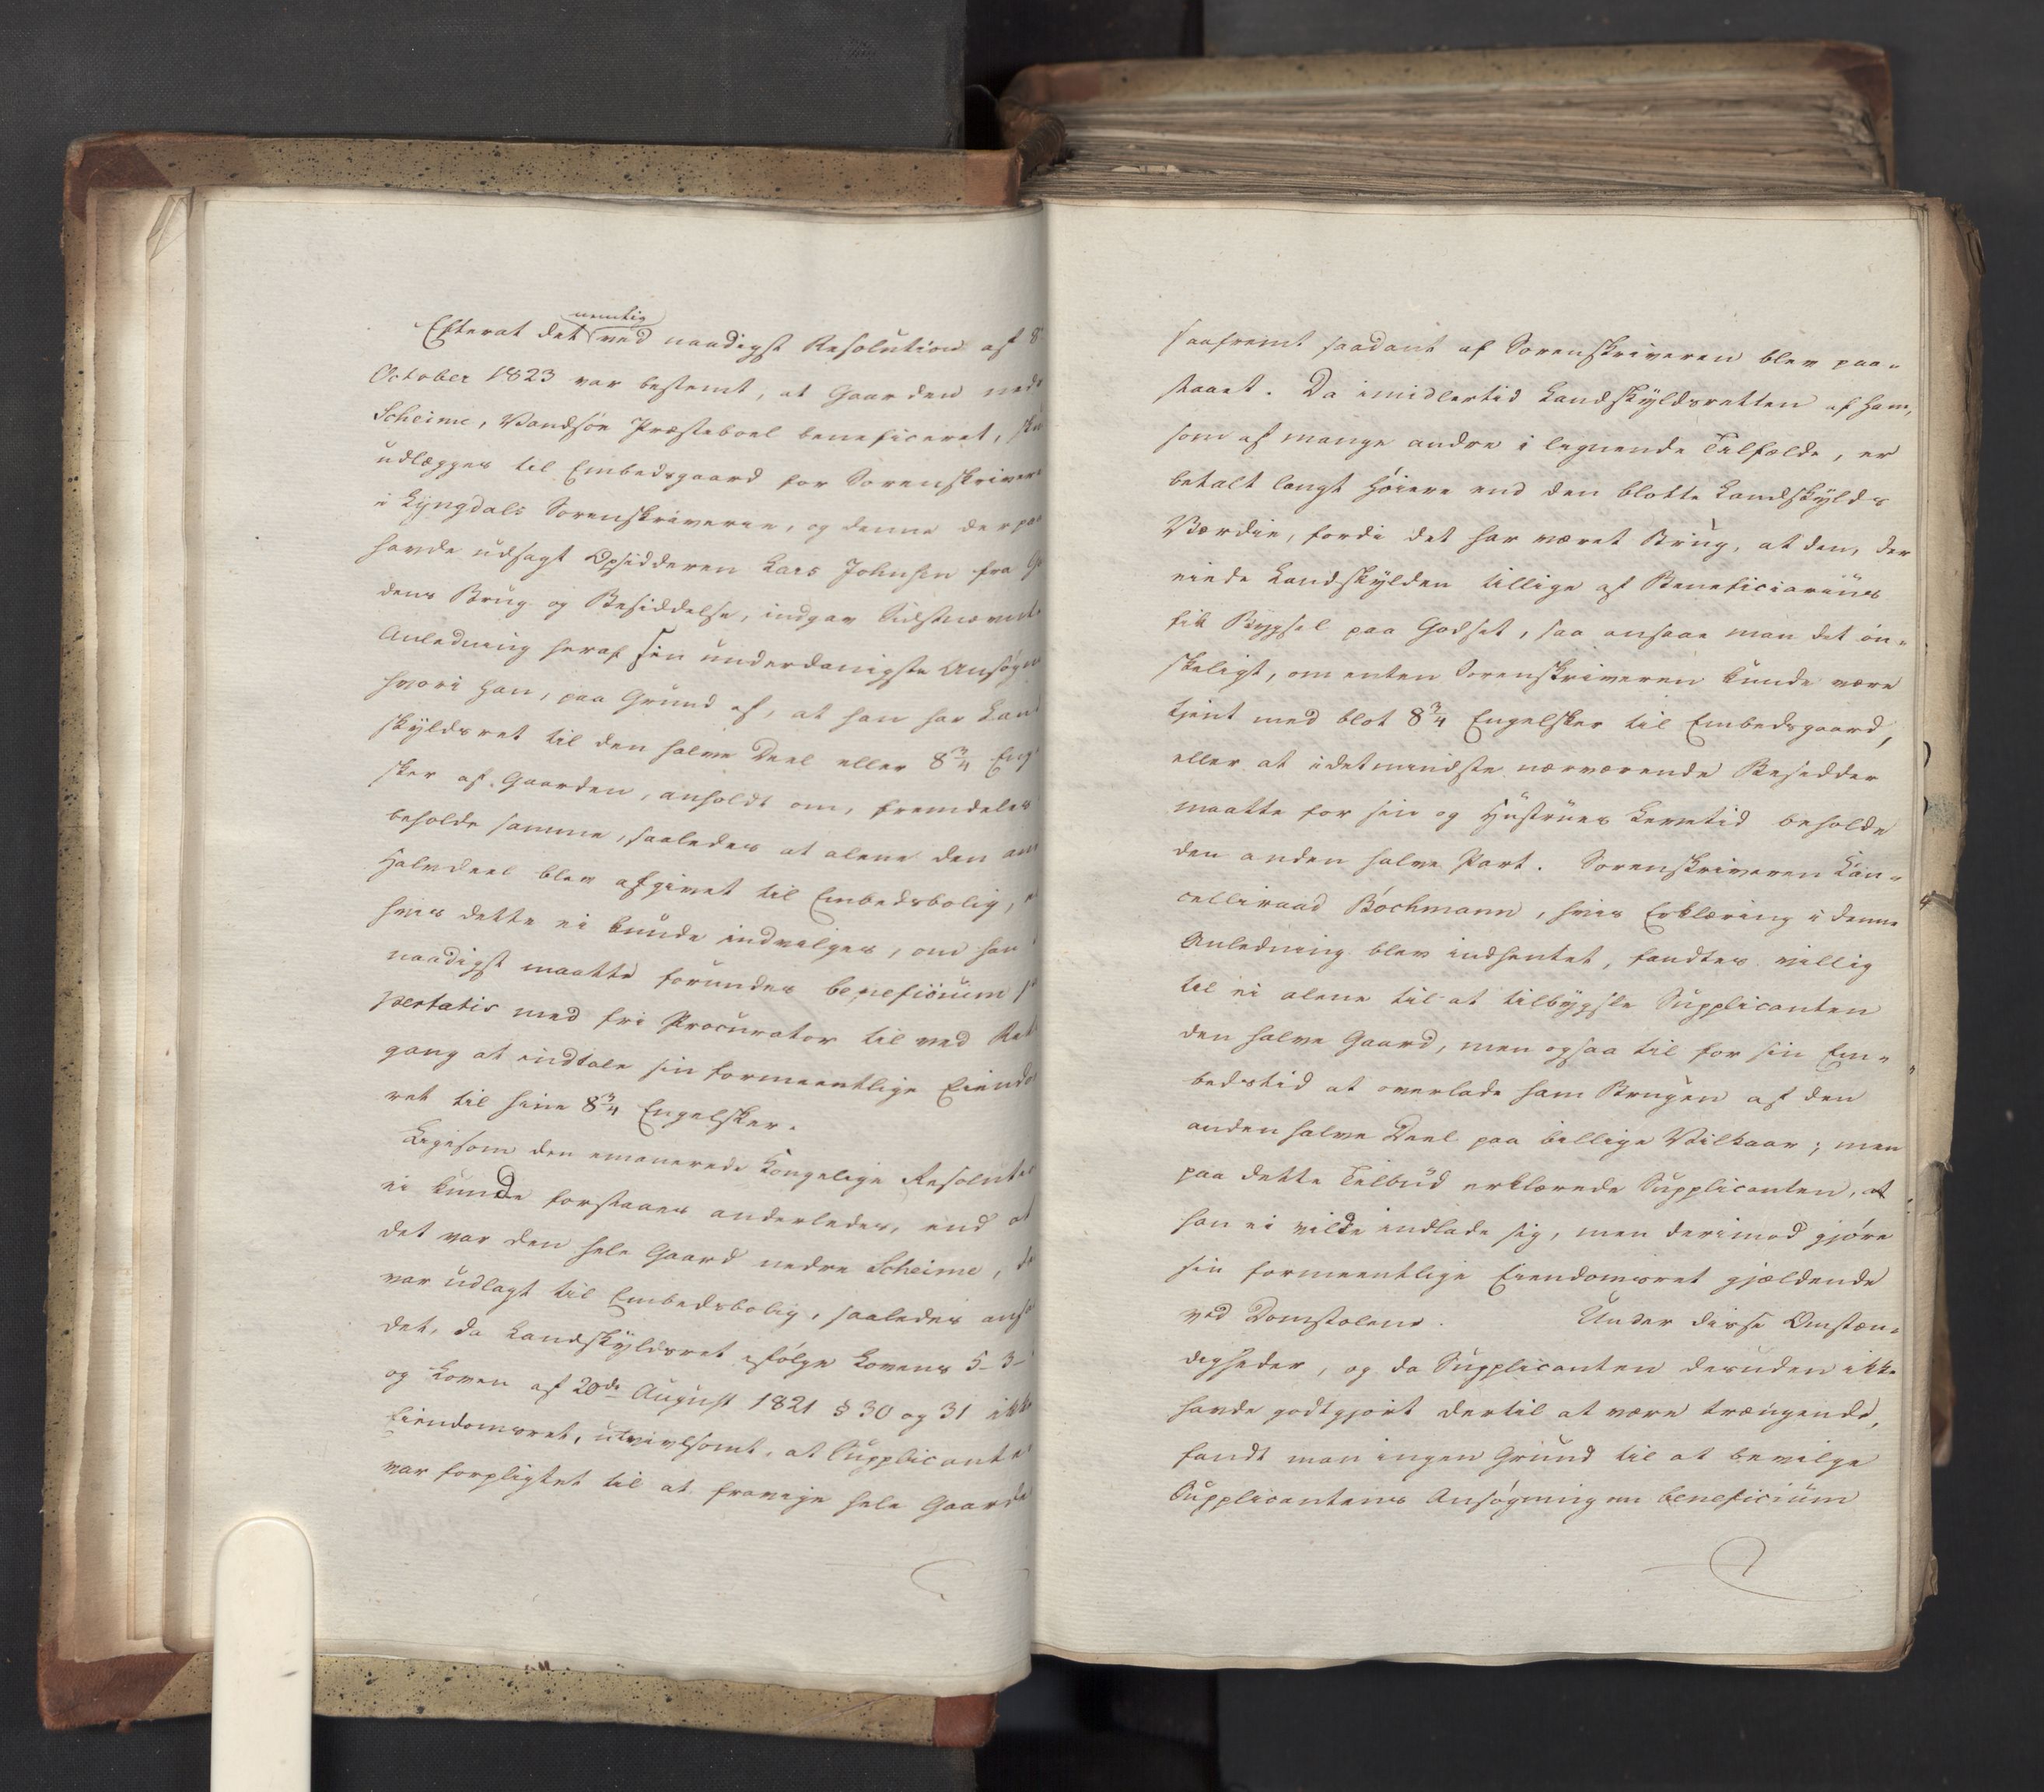 nemlig
Efterat det ved naadigst Resolution af 8
October 1823 var bestemt, at Gaarden nedr
Scheime, Vandsöe Præsteboel beneficeret, sku
udlægges til Embedsgaard for Sorenskrivere
i Lyngdals Sorenskriverie, og denne derpaa
havde udsagt Opsidderen Lars Johnsen fra Ga
dens Brug og Besiddelse, indgav Sidstnævnte
Anledning heraf sin underdanigste Ansøgn
hvori han, paa Grund af, at han har Land
skyldsret til den halve Deel eller 8 3/4 Eng
sker af Gaarden, anholdt om, fremdeles
beholde samme, saaledes at alene den an
Halvdeel blev afgivet til Embedsbolig,
hvis dette ei kunde indvilges, om han
naadigst maatte forundes beneficium p
pertatis med fri Procurator til ved Ret
gang at indtale sin formeentlige Eiendo
ret til sine 8 3/4 Engelsker.
Ligesom den emanerede Kongelige Resolution
ei kunde forstaaes anderledes, end at
det var den hele Gaard nedre Scheime, de
var udlagt til Embedsbolig, saaledes ansa
det, da Landskyldsret ifølge Lovens 5-3-
og Loven af 20de August 1821 § 30 og 31 ikke
Eiendomsret, utvivlsomt, at Supplicante
var forpligtet til at fravige hele Gaarde
saafremt saadant af Sorenskriveren blev paa-
staaet. Da imidlertid Landskyldsretten af ham,
som af mange andre i lignende Tilfælde, er
betalt langt høiere end den blotte Landskylds
Værdie, fordi det har været Brug, at den, der
eiede Landskylden tillige af Beneficiariius
fik Bygsel paa Godset, saa ansaae man det øn-
skeligt, om enten Sorenskriveren kunde være
tjent med blot 8 3/4 Engelsker til Embedsgaard,
eller at idetmindste nærværende Besidder
maatte for sin og Hustrues Levetid beholde
den anden halve Part. Sorenskriveren Can-
celliraad Bochmann, hvis Erklæring i denne
Anledning blev indhentet, fandtes villig
til ei alene til at tilbygsle Supplicanten
den halve Gaard, men ogsaa til for sin Em-
bedstid at overlade ham Brugen af den
anden halve Deel paa billige Vilkaar; men
paa dette Tilbud erklærede Supplicanten, at
han ei vilde indlade sig, men derimod gjøre
sin formeentlige Eiendomsret gjældende
ved Domstolene. Under disse Omstæn-
digheder, og da Supplicanten desuden ikke
havde godtgjort dertil at være trængende,
fandt man ingen Grund til at bevilge
Supplicantens Ansøgning om beneficiüm